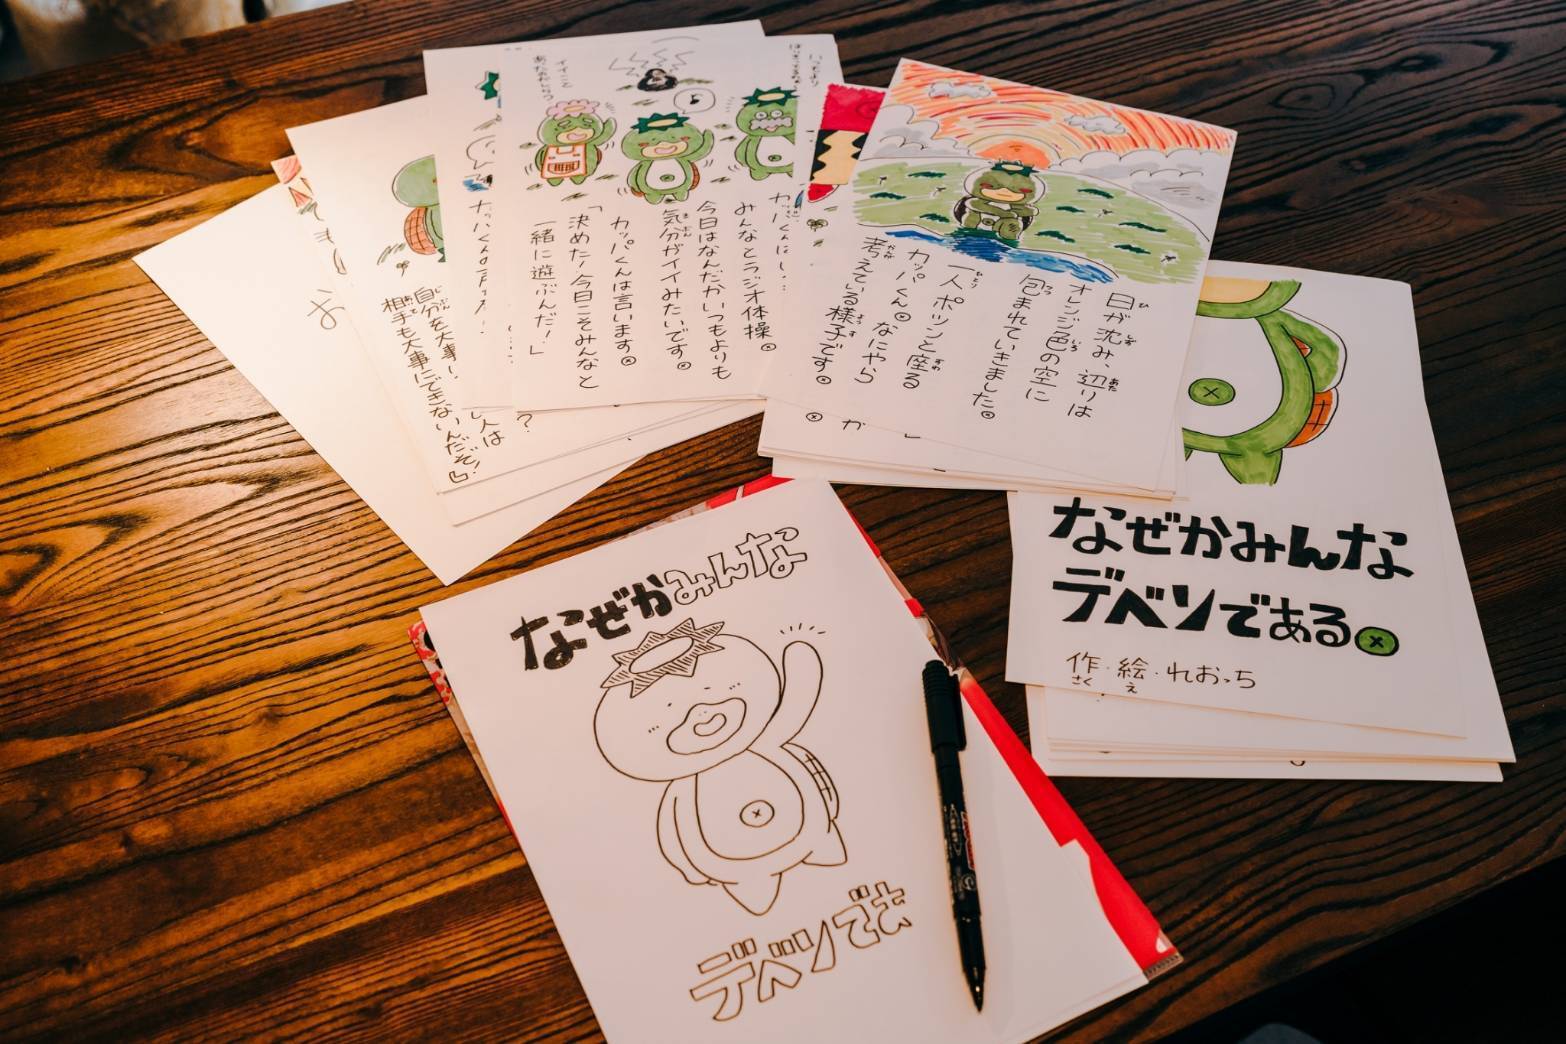 イイこと
あったかな?
カッパくんは言います。
「決めた!今日こそみんなと
一緒に遊ぶんだ!」
みんなとラジオ体操。
今日はなんだかいつもよりも
気分がイイみたいです。
日が沈み、辺りは
オレンジ色の空に
包まれていきました。
一人ポツンと座る
カッパくん。なにやら
考えている様子です。
自分を大事に
人は
相手も大事にできないんだぞ!』
お
なぜかみんな
デベソである。
作・絵・れおっち
さく え
なぜかみんな
デベソでも